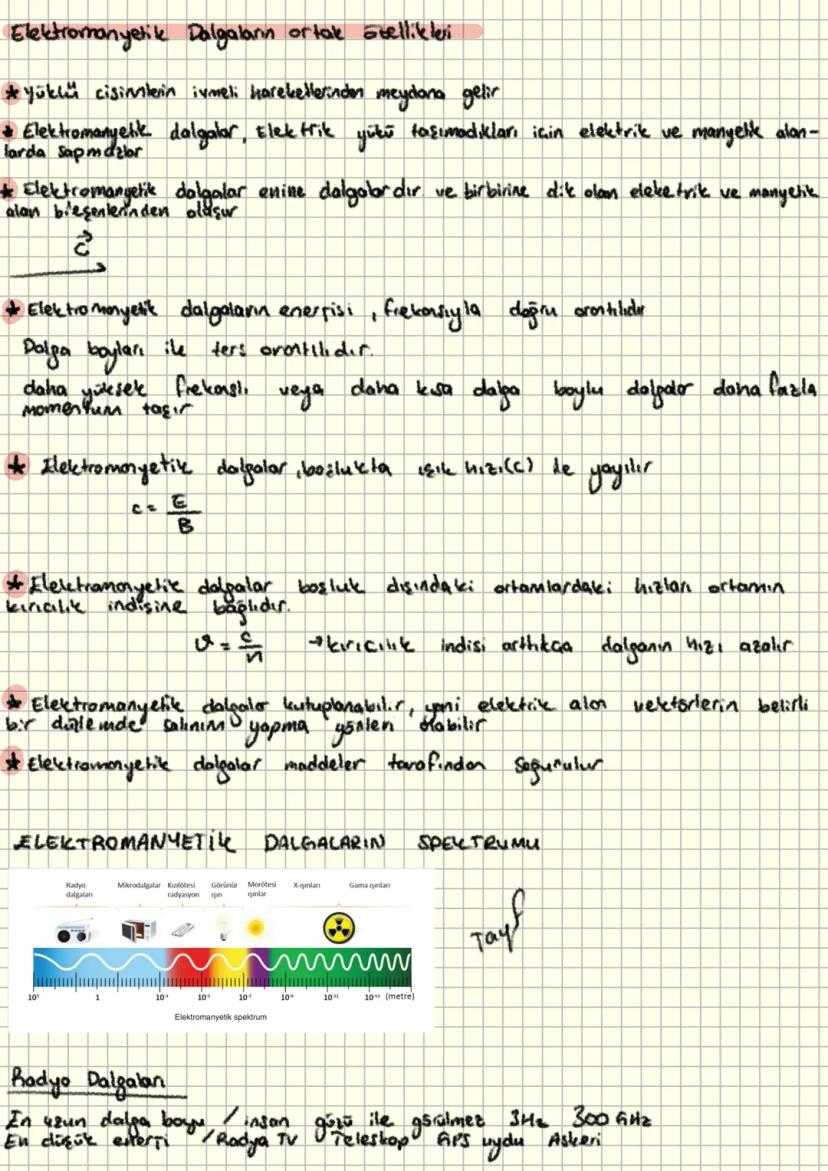 Elektromanyetik Dalgaların ortak özellikleri
* yüklü cisimlerin ivmeli hareketlerinden meydana gelir
* Elektromanyetik dalgalar, Elektrik yükü taşımadıkları için elektrik ve manyetik alan-
larda sapmazlar
* Elektromanyetik dalgalar enine dalgalardır ve birbirine dik olan elekektrik ve manyetik
alan bileşenlerinden oluşur
c
* Elektromanyetik dalgaların enerjisi, frekansıyla doğru orantılıdır
Dalga boyları ile ters orantılıdır.
daha yüksek frekanslı veya daha kısa dalga boylu dalgalar daha fazla
momentum taşır
* Elektromanyetik dalgalar, boşlukta ışık hızı(c) ile yayılır
c = E/B
* Elektromanyetik dalgalar boşluk dışındaki ortamlardaki hızları ortamın
kırıcılık indisine bağlıdır.
v = c/n → kırıcılık indisi arttıkça dalganın hızı azalır
* Elektromanyetik dalgalar kutuplanabilir, yani elektrik alan vektörlerin belirli
bir düzlemde salınım yapma yönleri olabilir
* Elektromanyetik dalgalar maddeler tarafından soğurulur
ELEKTROMANYETİK DALGALARIN SPEKTRUMU
Radyo dalgaları Mikrodalgalar Kızılötesi radyasyon Görünür ışın Morötesi ışınlar X-ışınları Gama ışınları
Tayf
1 (metre)
Elektromanyetik spektrum
Radyo Dalgaları
En uzun dalga boyu / insan gözü ile görülmez 3Hz 300 GHz
En düşük enerji / Radyo TV Teleskop GPS uydu Askeri